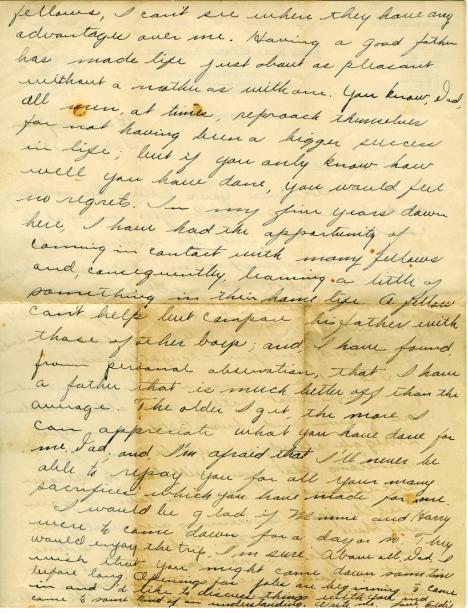 fellows, I can't see where they have any
advantages over me. Having a good father
has made life just about as pleasant
without a mother as with one. You know, Dad,
all men, at times, reproach themselves
for not having been a bigger success
in life; but if you only know how
well you have done, you would feel
no regrets. In my five years down
here, I have had the opportunity of
coming in contact with many fellows
and, consequently, learning a little of
something in their home life. A fellow
can't help but compare his father with
those of other boys; and, I have found
from personal observation, that I have
a father that is much better off than the
average. The older I get, the more I
can appreciate what you have done for
me, Dad, and I'm afraid that I'll never be
able to repay you for all your many
sacrifices which you have made for me.
I would be glad if Minnie and Harry
were to come down for a day or so. They
would enjoy the trip, I'm sure. Above all, Dad, I
wish that you might come down some time
before long. Openings for jobs are beginning to come
in and I'd like to discuss things with you and
come to some kind of an understanding.